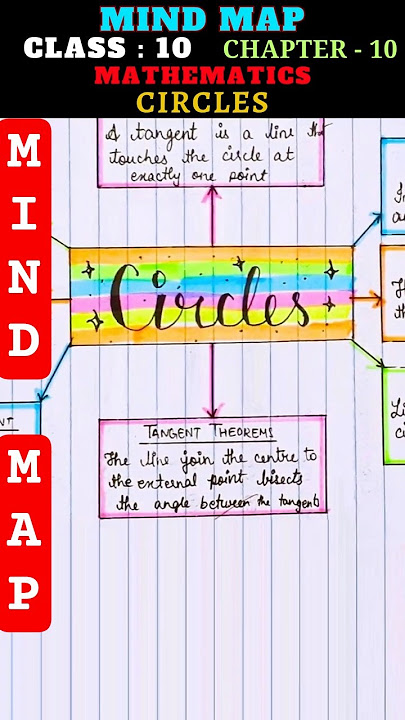 MIND MAP
CLASS : 10 CHAPTER - 10
MATHEMATICS
CIRCLES
MIND
MAP
A tangent is a line that
touches the circle at
exactly one point
Circles
TANGENT THEOREMS
The line join the centre to
the external point bisects
the angle between the tangents
NT